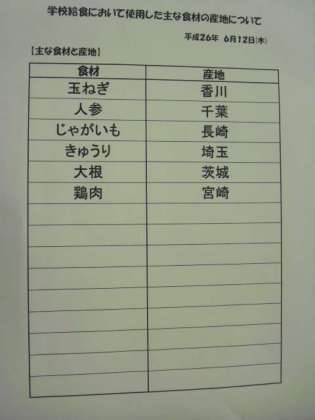 学校給食において使用した主な食材の産地について
平成26年 6月12日(木)
【主な食材と産地】
食材 産地
玉ねぎ 香川
人参 千葉
じゃがいも 長崎
きゅうり 埼玉
大根 茨城
鶏肉 宮崎